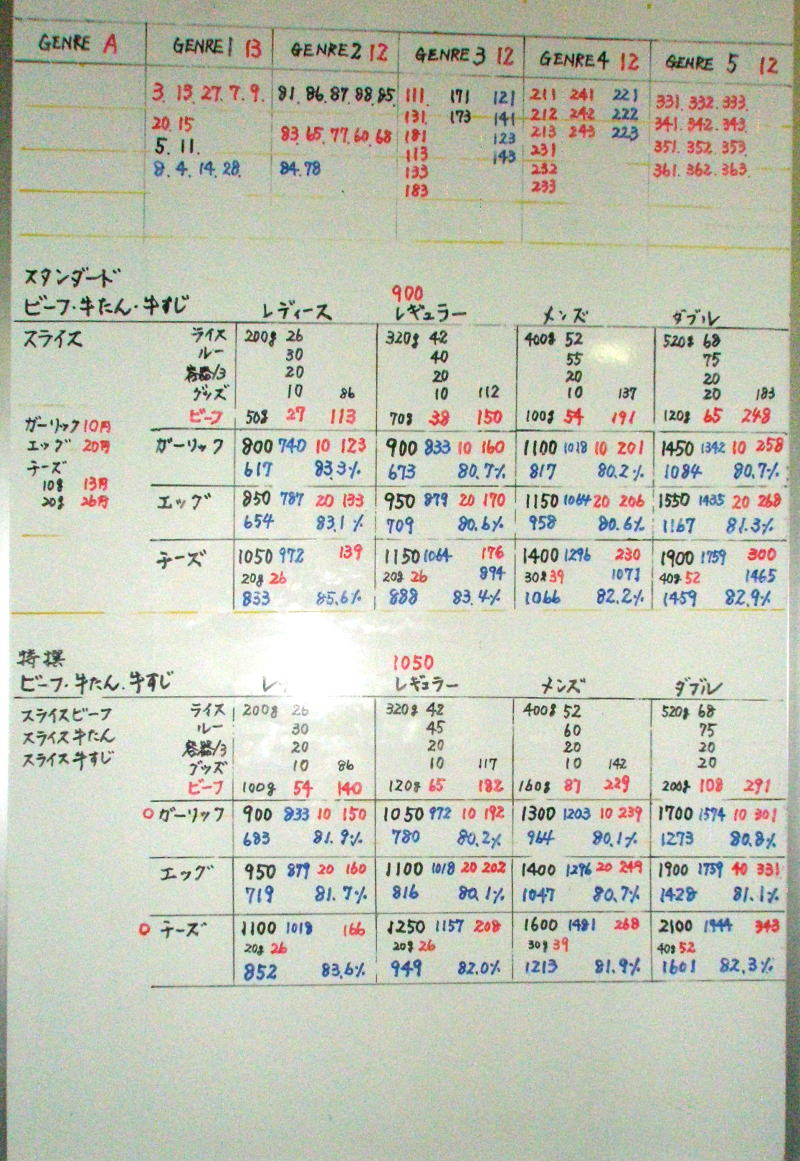 GENRE A GENRE1 13 GENRE2 12 GENRE 3 12 GENRE4 12 GENRE 5 12
3. 13. 27. 7. 9. 81. 86. 87. 88. 85. 111. 171 121 211 241 221 331. 332. 333.
20. 15 83. 65. 77. 60. 68 131. 173 141 212 242 222 341. 342. 343.
5. 11. 181 123 213 243 223 351. 352. 353.
8. 4. 14. 28. 84. 78 113 143 231 361. 362. 363.
133 232
183 233
スタンダード
ビーフ・牛たん・牛すじ レディース 900 レギュラー メンズ ダブル
スライス ライス 200g 26 320g 42 400g 52 520g 68
ルー 30 40 55 75
容器/3 20 20 20 20
グッズ 10 86 10 112 10 137 20 183
ビーフ 50g 27 113 70g 38 150 100g 54 191 120g 65 248
ガーリック 10円
エッグ 20円
チーズ
10g 13円
20g 26円
ガーリック 800 740 10 123 900 833 10 160 1100 1018 10 201 1450 1342 10 258
617 83.3% 673 80.7% 817 80.2% 1084 80.7%
エッグ 850 787 20 133 950 879 20 170 1150 1064 20 206 1550 1435 20 268
654 83.1% 709 80.6% 958 80.6% 1167 81.3%
チーズ 1050 972 139 1150 1064 176 1400 1296 230 1900 1759 300
20g 26 20g 26 894 30g 39 1071 40g 52 1465
833 85.6% 888 83.4% 1066 82.2% 1459 82.9%
特撰 1050
ビーフ・牛たん・牛すじ レ レギュラー メンズ ダブル
スライスビーフ ライス 200g 26 320g 42 400g 52 520g 68
スライス牛たん ルー 30 45 60 75
スライス牛すじ 容器/3 20 20 20 20
グッズ 10 86 10 117 10 142 20
ビーフ 100g 54 140 120g 65 182 160g 87 229 200g 108 291
○ガーリック 900 833 10 150 1050 972 10 192 1300 1203 10 239 1700 1574 10 301
683 81.9% 780 80.2% 964 80.1% 1273 80.8%
エッグ 950 879 20 160 1100 1018 20 202 1400 1296 20 249 1900 1759 40 331
719 81.7% 816 80.1% 1047 80.7% 1428 81.1%
○チーズ 1100 1018 166 1250 1157 208 1600 1481 268 2100 1944 343
20g 26 20g 26 30g 39 40g 52
852 83.6% 949 82.0% 1213 81.9% 1601 82.3%